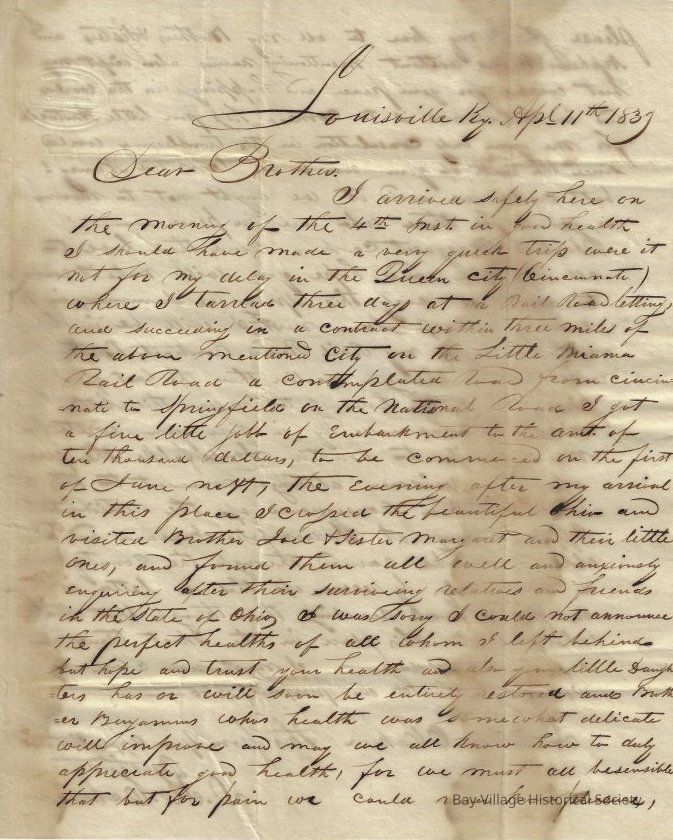 Louisville Ky. Apl. 11th 1839
Dear Brother.
I arrived safely here on
the morning of the 4th Inst in good health
I should have made a very quick trip were it
not for my delay in the Queen City (Cincinnati)
where I tarried three days at a Rail Road letting,
and succeeding in a contract within three miles of
the above mentioned City on the Little Miama
Rail Road a contemplated Road from cincin
nate to Springfield on the National Road I got
a fine little jobb of Embarkment to the amt. of
ten thousand dollars, to be commenced on the first
of June next, the Evening after my arrival
in this place I crossed the beautiful Ohio and
visited Brother Joel & Sister Margaret and their little
ones, and found them all well and anxiously
enquiring after their surviving relatives and friends
in the State of Ohio, I was sorry I could not announce
the perfect healths of all whom I left behind
but hope and trust your health and also your little Daugh
ters has or will soon be entirely restored and Broth
er Benjamins whos health was somewhat delicate
will improve and may we all know how to duly
appreciate good health, for we must all be sensible
that but for pain we could
Bay Village Historical Society